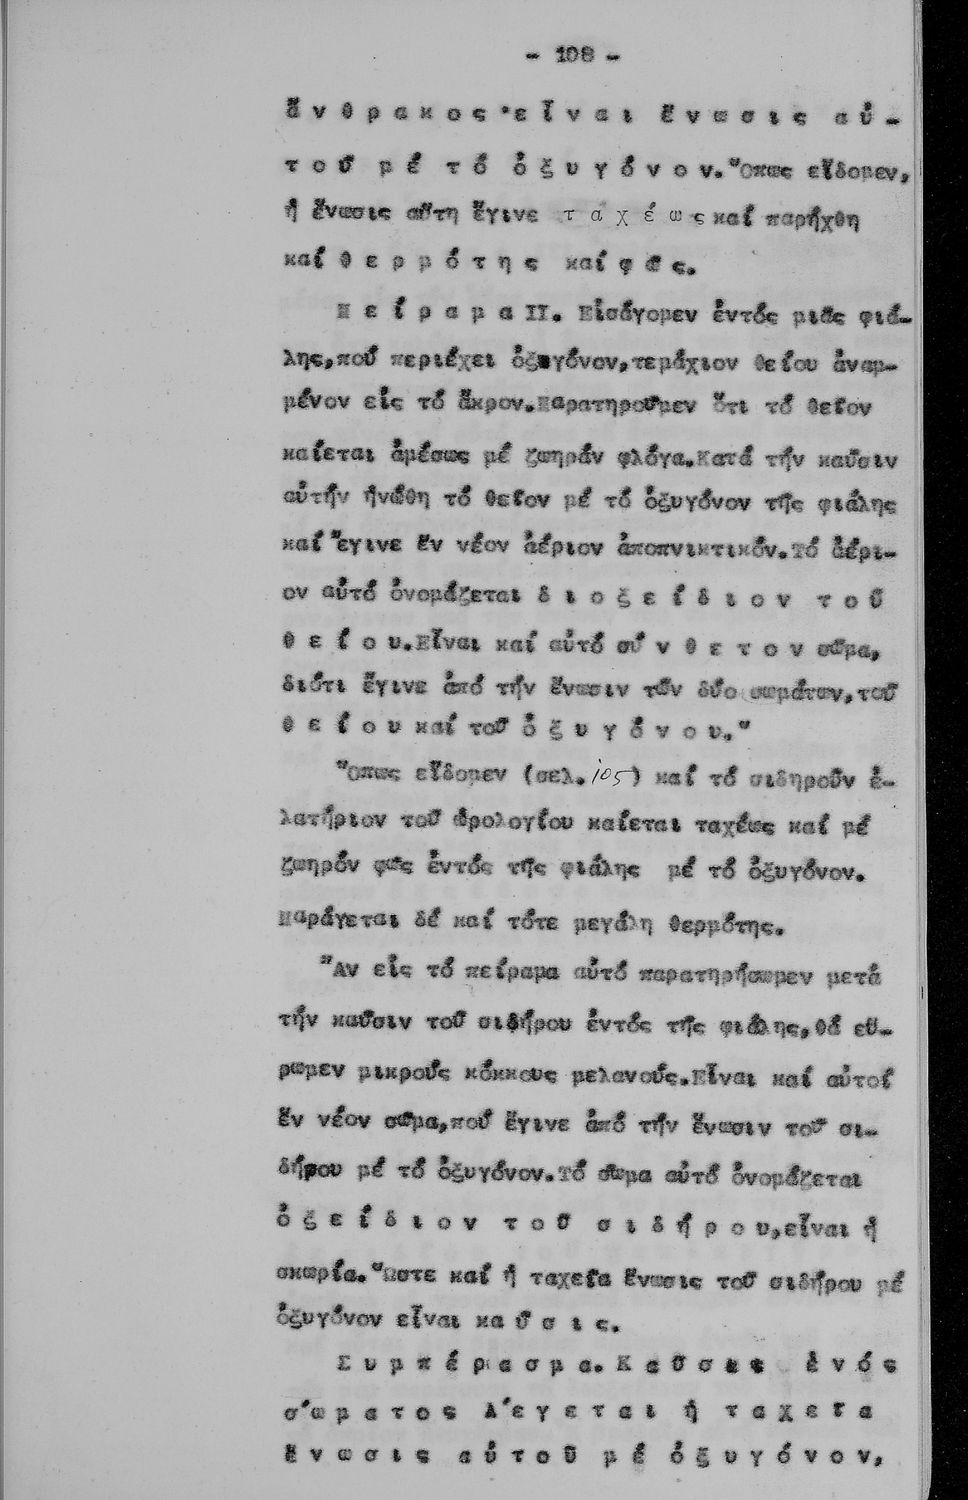 - 108 -
ἄ ν θ ρ α κ ο ς · ε ἶ ν α ι ἕ ν ω σ ι ς α ὐ -
τ ο ῦ μ έ τ ό ὀ ξ υ γ ό ν ο ν. Ὅπως εἴδομεν,
ἡ ἕνωσις αὕτη ἔγινε τ α χ έ ω ς καί παρήχθη
καί θ ε ρ μ ό τ η ς καί φ ῶ ς.
Π ε ί ρ α μ α ΙΙ. Εἰσάγομεν ἐντός μιᾶς φιά-
λης, πού περιέχει ὀξυγόνον, τεμάχιον θείου ἀναμ-
μένον εἰς τό ἄκρον. Παρατηροῦμεν ὅτι τό θεῖον
καίεται ἀμέσως μέ ζωηράν φλόγα. Κατά τήν καῦσιν
αὐτήν ἡνώθη τό θεῖον μέ τό ὀξυγόνον τῆς φιάλης
καί ἔγινε ἕν νέον ἀέριον ἀποπνικτικόν. Τό ἀέρι-
ον αὐτό ὀνομάζεται δ ι ο ξ ε ί δ ι ο ν τ ο ῦ
θ ε ί ο υ. Εἶναι καί αὐτό σύ ν θ ε τ ο ν σῶμα,
διότι ἔγινε ἀπό τήν ἕνωσιν τῶν δύο σωμάτων, τοῦ
θ ε ί ο υ καί τοῦ ὀ ξ υ γ ό ν ο υ."
Ὅπως εἴδομεν (σελ. 105) καί τό σιδηροῦν ἐ-
λατήριον τοῦ ὡρολογίου καίεται ταχέως καί μέ
ζωηρόν φῶς ἐντός τῆς φιάλης μέ τό ὀξυγόνον.
Παράγεται δέ καί τότε μεγάλη θερμότης.
Ἄν εἰς τό πείραμα αὐτό παρατηρήσωμεν μετά
τήν καῦσιν τοῦ σιδήρου ἐντός τῆς φιάλης, θά εὕ-
ρωμεν μικρούς κόκκους μελανούς. Εἶναι καί αὐτοί
ἕν νέον σῶμα, πού ἔγινε ἀπό τήν ἕνωσιν τοῦ σι-
δήρου μέ τό ὀξυγόνον. Τό σῶμα αὐτό ὀνομάζεται
ὀ ξ ε ί δ ι ο ν τ ο ῦ σ ι δ ή ρ ο υ, εἶναι ἡ
σκωρία. Ὥστε καί ἡ ταχεῖα ἕνωσις τοῦ σιδήρου μέ
ὀξυγόνον εἶναι κα ῦ σ ι ς.
Σ υ μ π έ ρ α σ μ α. Κ α ῦ σ ι ς ἑ ν ό ς
σ ώ μ α τ ο ς λ έ γ ε τ α ι ἡ τ α χ ε ῖ α
ἕ ν ω σ ι ς α ὐ τ ο ῦ μ έ ὀ ξ υ γ ό ν ο ν,